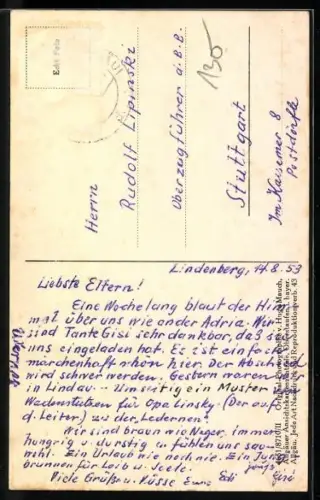 Echt Foto
130
Herrn
Rudolf Lipinski
Oberzugführer a.B.B.
Stuttgart
Im Kaisemer 8
Postdörfle
Lindenberg, 14.8.53
Liebste Eltern!
Eine Woche lang blaut der Him
mel über uns wie an der Adria. Wir
sind Tante Gisi sehr dankbar, daß d
uns eingeladen hat. Es ist einfach
märchenhaft schön hier. Der Abschied
wird schwer werden. Gestern waren wir
in Lindau. - Umseitig ein Muster
Wadenstutzen für Opa Linsky. (Der auf
d. Leiter) zu der Ledernen!
Wir sind braun wie Neger, immer
hungrig u. durstig u. fühlen uns sau-
wohl. Ein Urlaub wie noch nie. Ein Jung-
brunnen für Leib u. Seele.
Viele Grüße u. Küsse
Edi